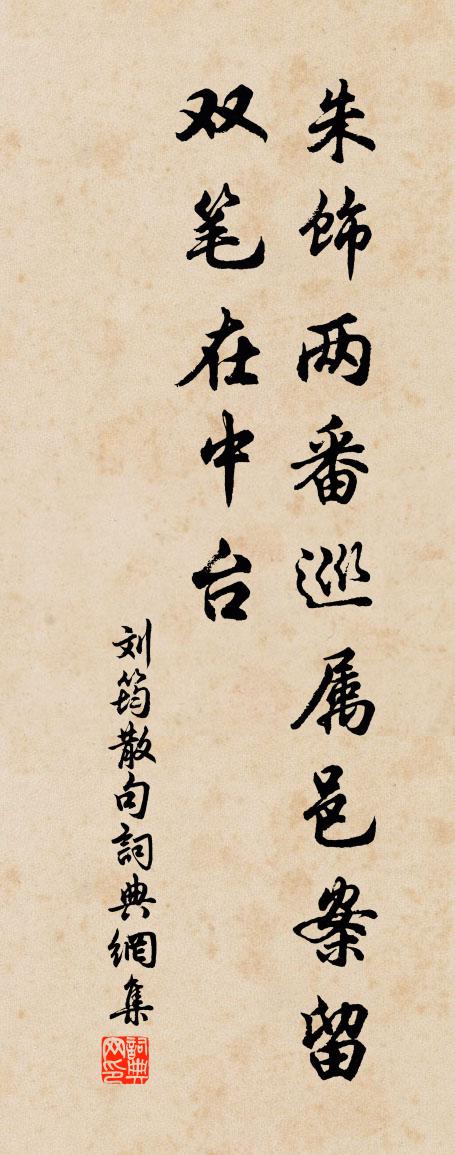 朱饰两番巡属邑案留
双笔在中台
刘筠散句詞典網集
詞典网印